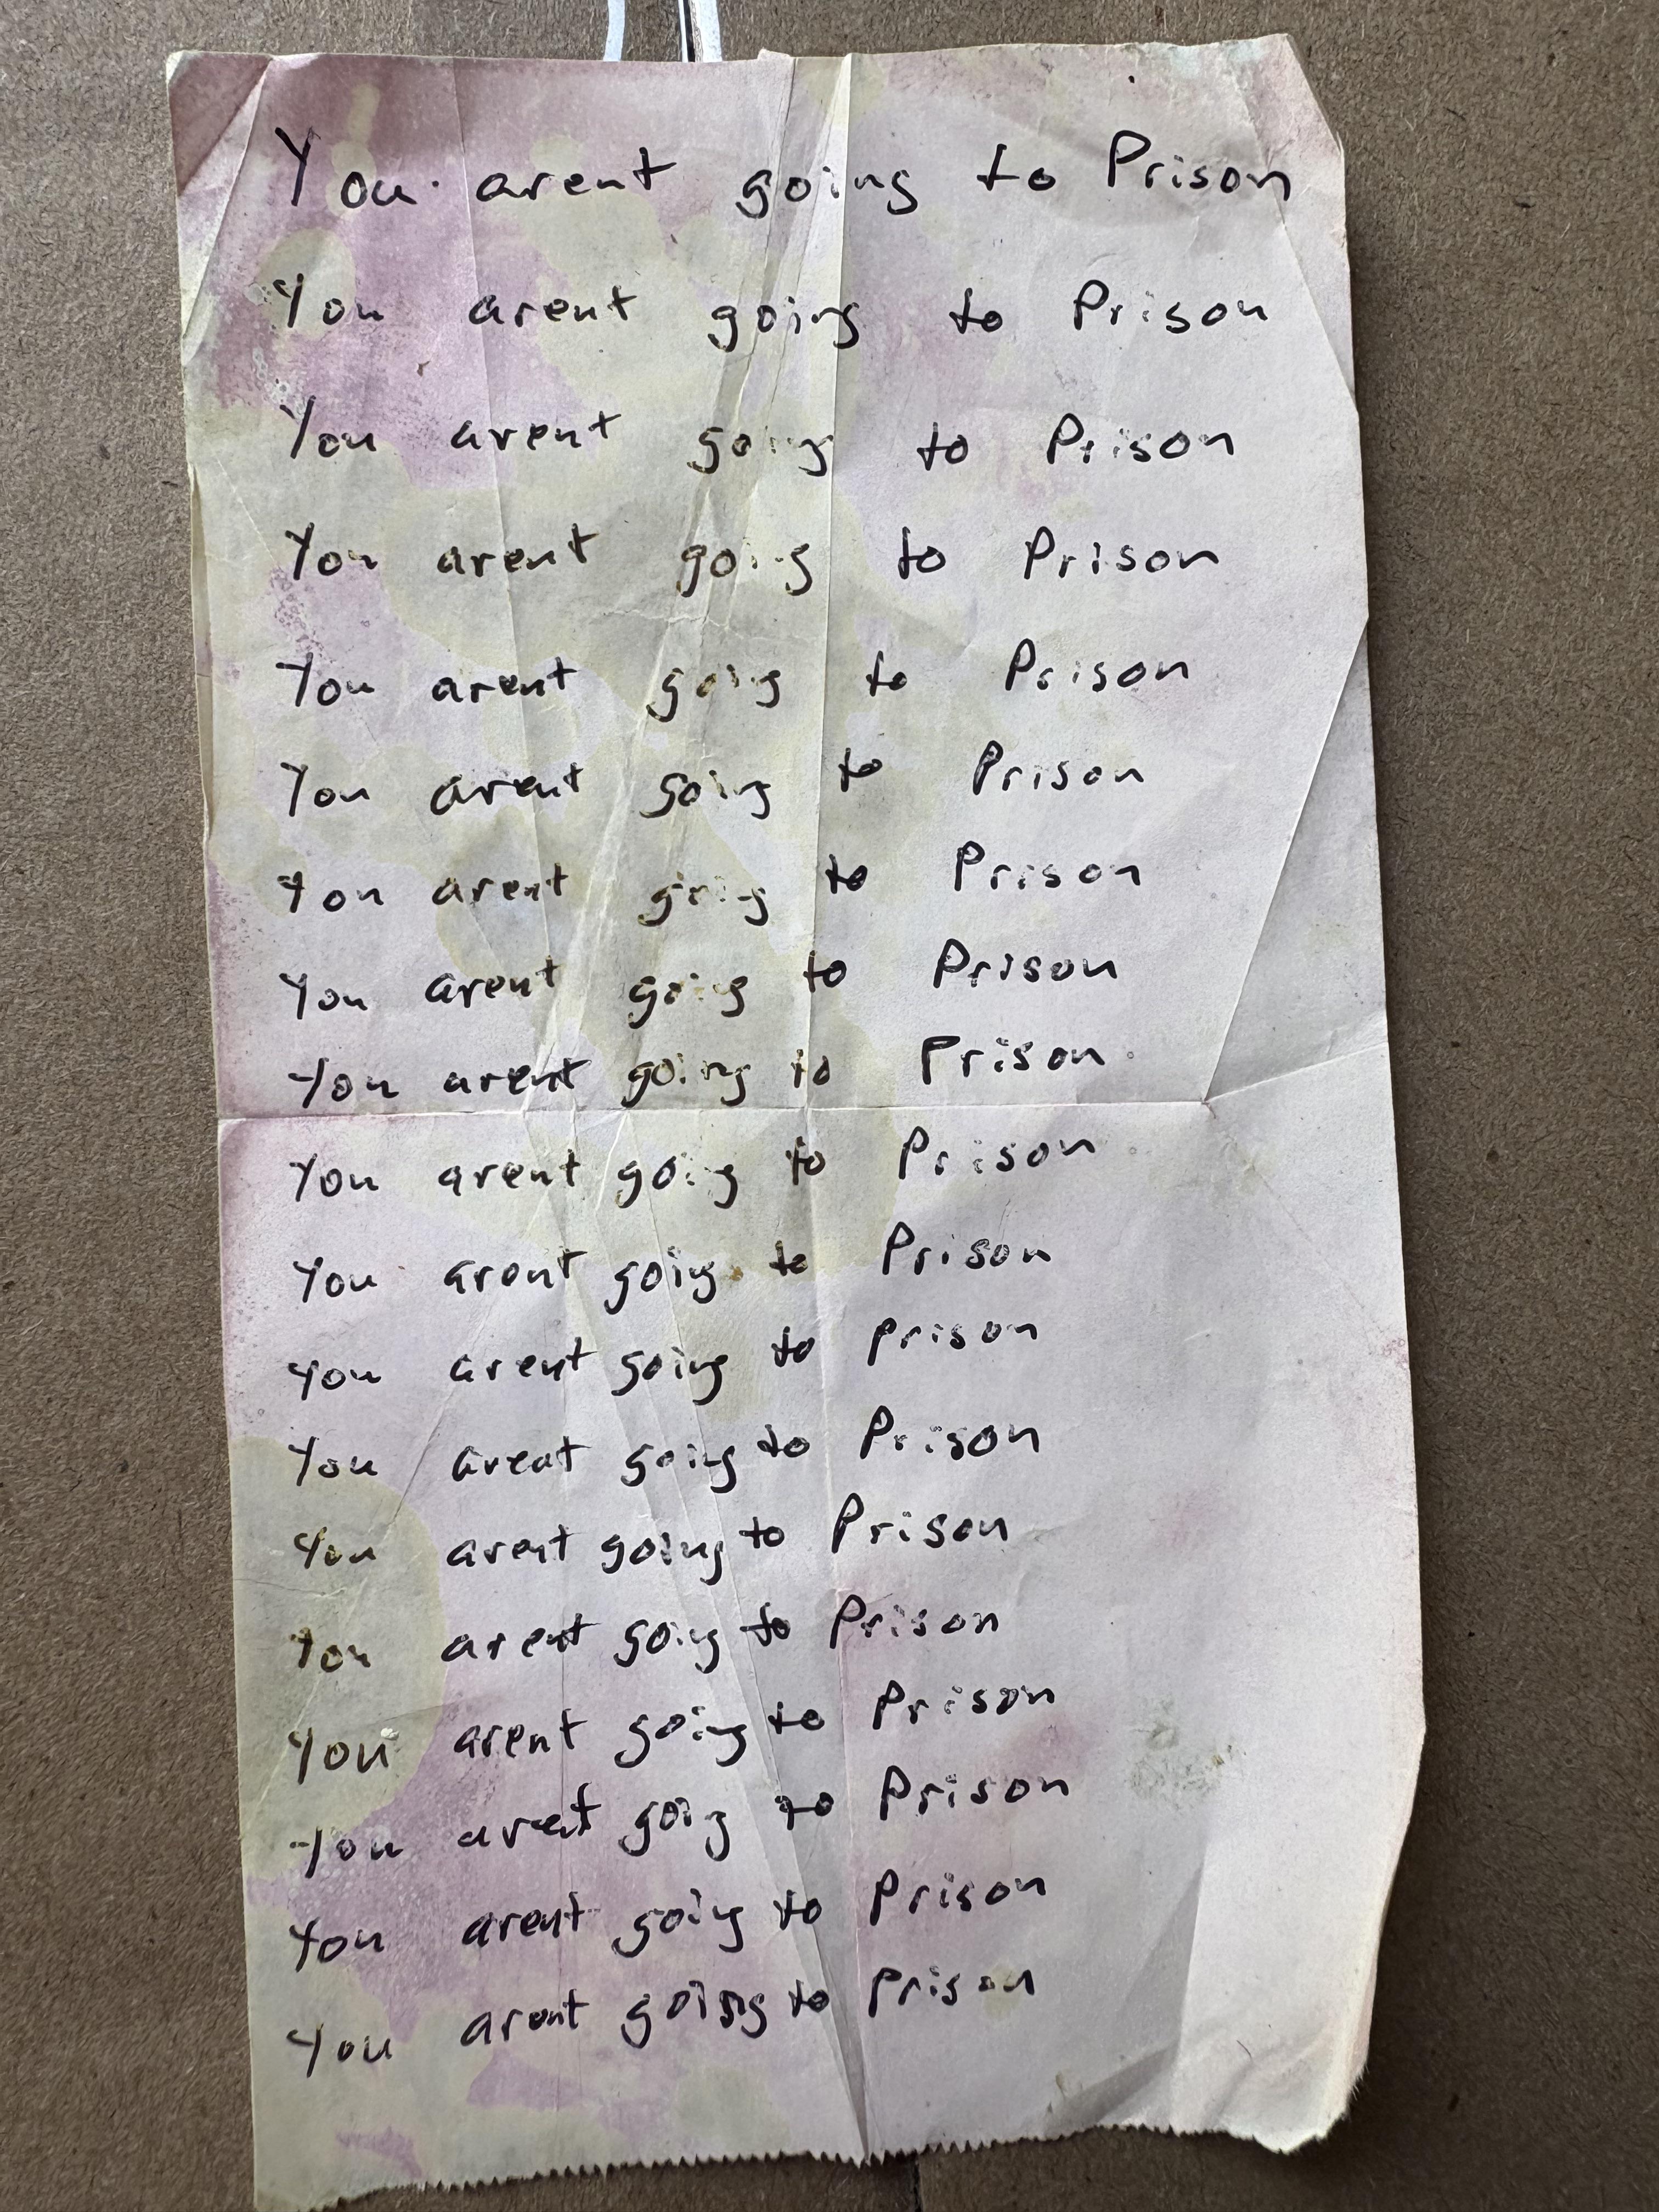 You arent going to Prison
You arent going to Prison
You arent going to Prison
You arent going to Prison
You arent going to Prison
You arent going to Prison
You arent going to Prison
You arent going to Prison
You arent going to Prison
You arent going to Prison
You arent going to Prison
You arent going to prison
You arent going to Prison
You arent going to Prison
You arent going to Prison
You arent going to Prison
You arent going to Prison
You arent going to Prison
You arent going to prison